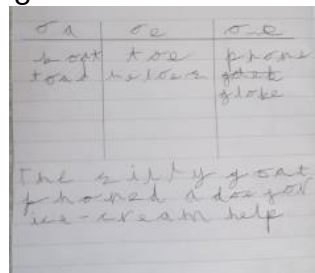 oa oe o-e
boat toe phone
toad heloes globe
The silly goat
phoned a doe for
ice-cream help